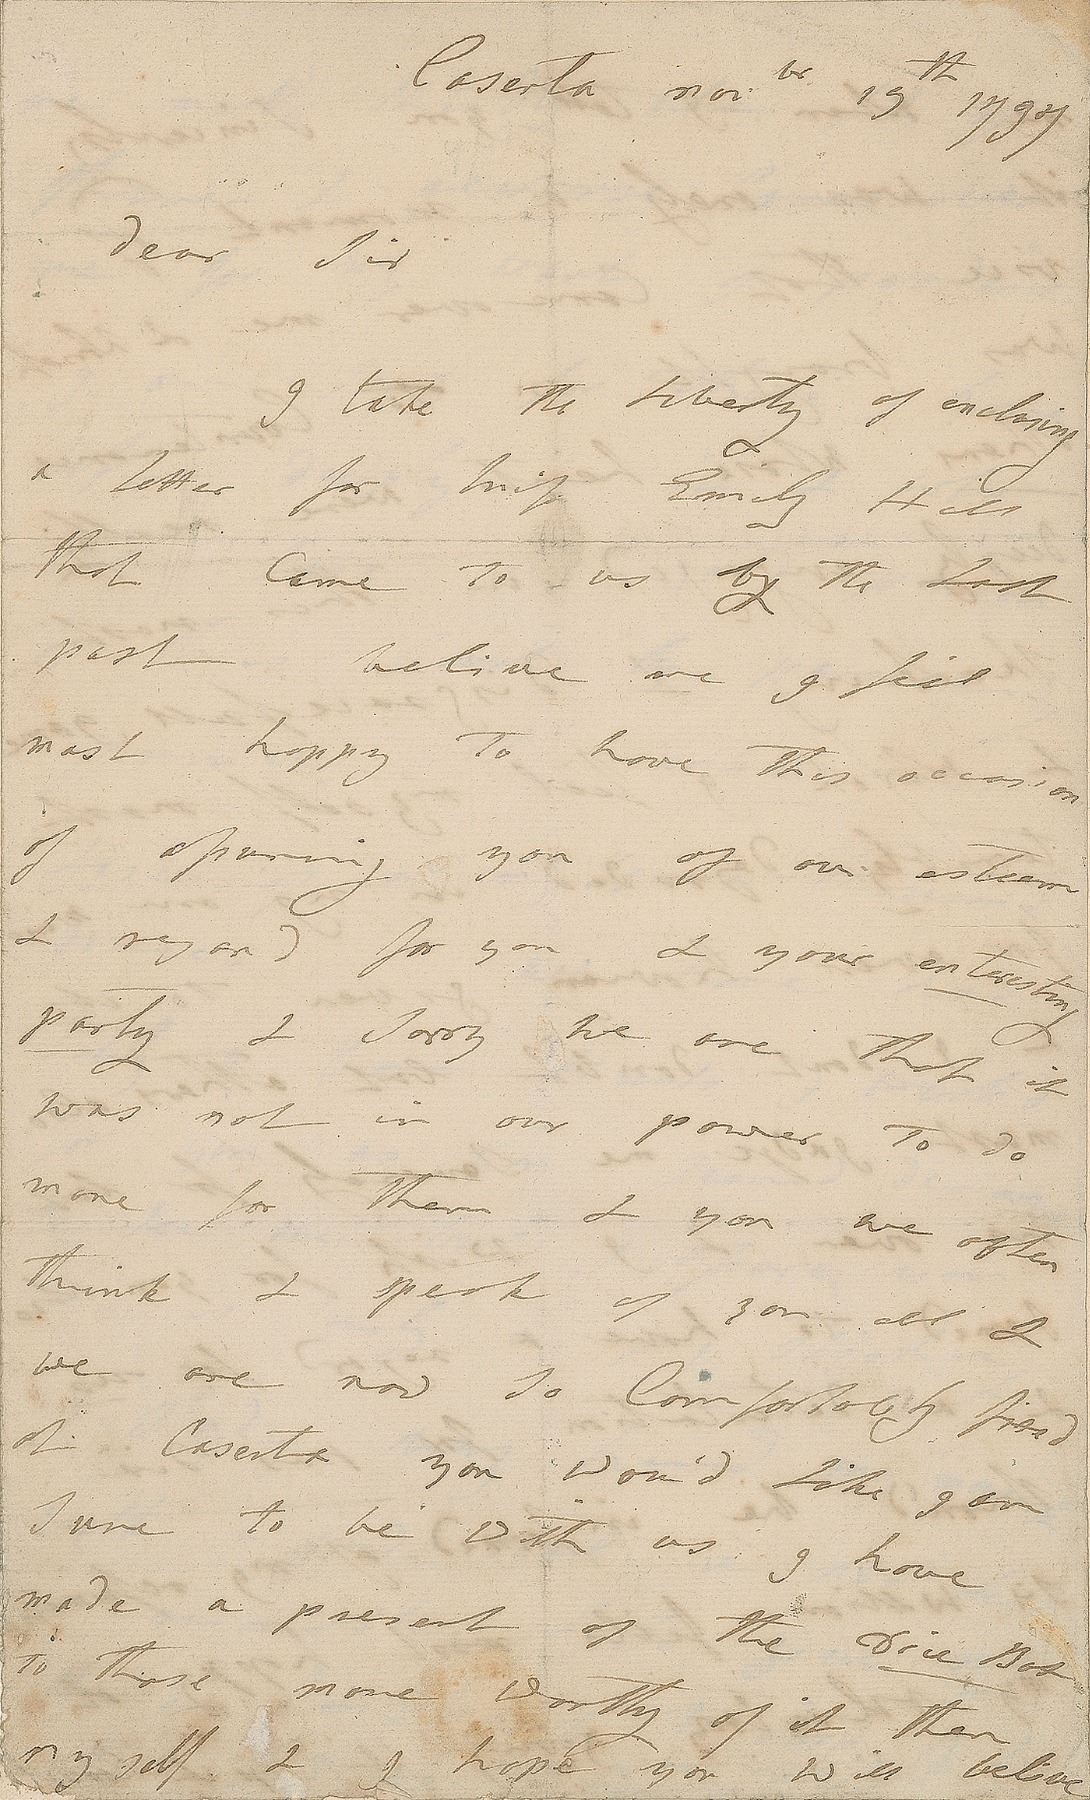 Caserta nov.br 19th 1797
dear Sir
I take the Liberty of enclosing
a letter for miss Emily Hill
that Came to us by the Last
post belive me I feil
most happy to have this occasion
of assuring you of our esteem
& regard for you & your enteresting
party & Sorry we are that it
was not in our power to do
more for them & you we often
think & speak of you all &
we are now so Comfortobly fixed
at Caserta you wou'd Like I am
Sure to be with us I have
made a present of the Dice Box
to those more worthy of it then
my self & I hope you will belive